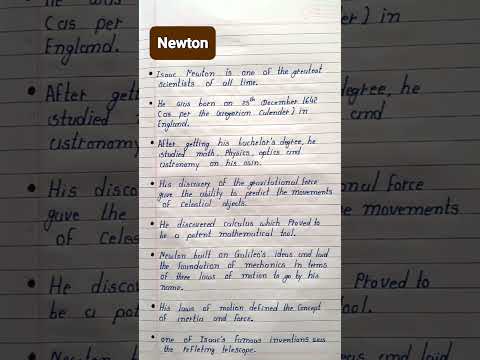 Newton
Isaac Newton is one of the greatest
scientists of all time.
He was born on 25th December 1642
(as per the Gregorian Calender) in
England.
After getting his bachelor's degree, he
studied math, Physics, optics and
astronomy on his own.
His discovery of the gravitational force
gave the ability to predict the movements
of celestial objects.
He discovered calculus which Proved to
be a potent mathematical tool.
Newton built on Galileo's ideas and laid
the foundation of mechanics in terms
of three laws of motion to go by his
name.
His laws of motion defined the Concept
of inertia and force.
one of Isaac's famous inventions was
the refleting telescope.